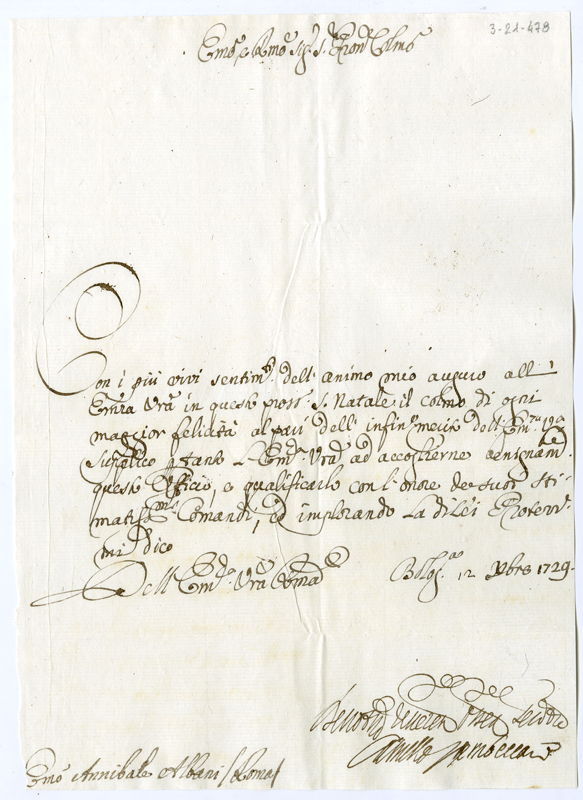 3-21-478
Emo. e Rmo. Sig. S. Pron. Colmo
Con i più vivi sentim.ti dell'animo mio auguro all'
Emza Vra in questo pross. S. Natale il colmo di ogni
maggior felicità al pari dell'infin. merito dell'
Supplico tanto L'Em. Vra ad accoglierne benignam.te
questo Officio, e qualificarlo con l'onore de suoi sti
matiss. Comandi, ed implorando La di lei Protez.
mi dico
Dell'Em. Vra Rma
Bolog. 12 Xbre 1729.
Emo Annibale Albani / Roma /